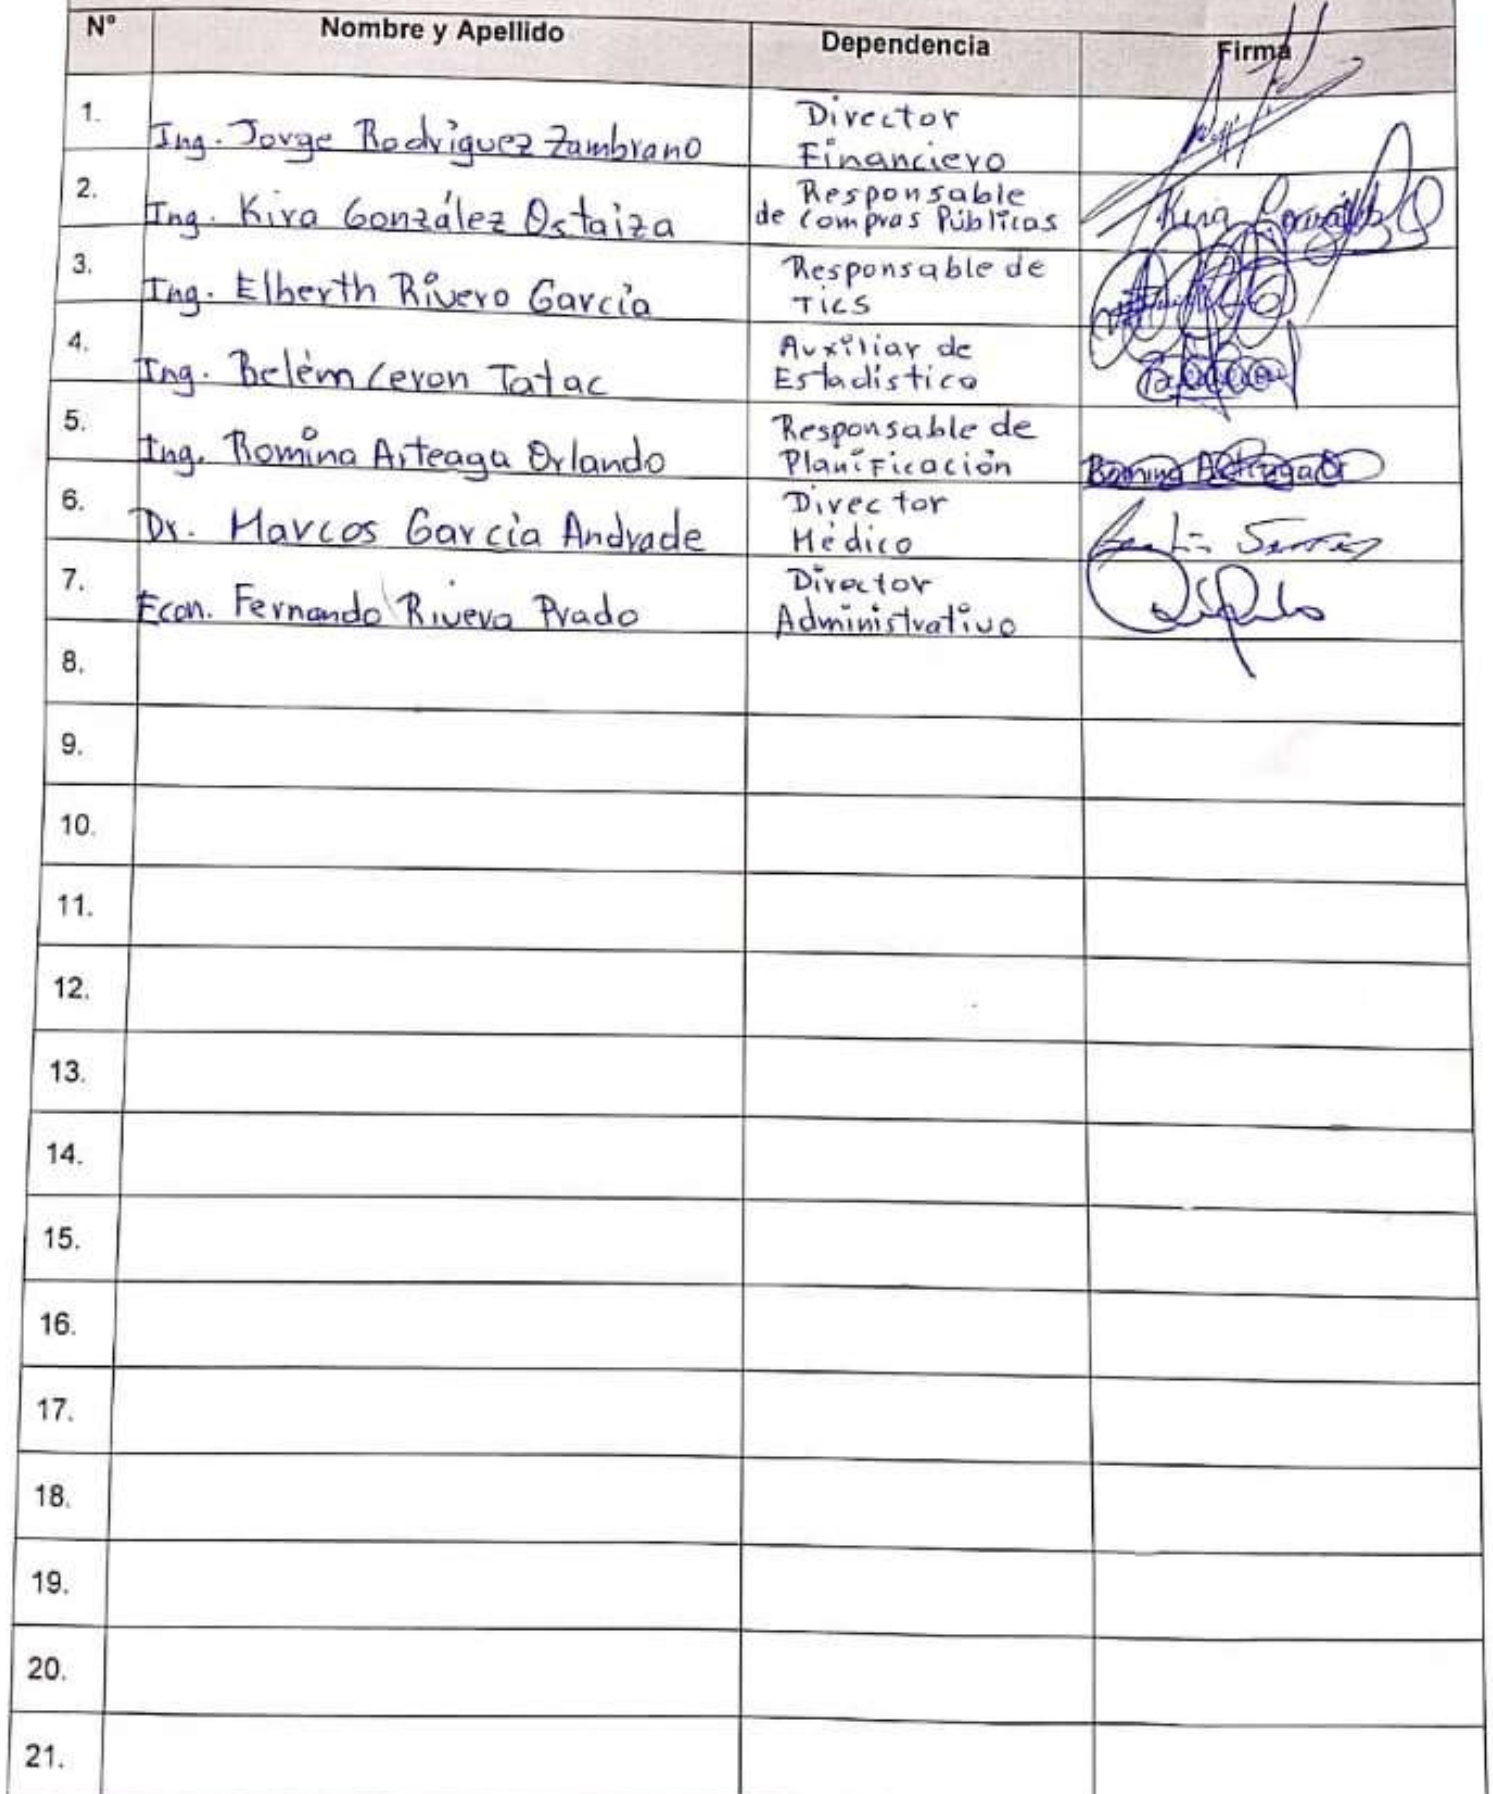 N° Nombre y Apellido Dependencia Firma
1. Ing. Jorge Rodríguez Zambrano Director
Financiero
2. Ing. Kira González Ostaiza Responsable
de Compras Públicas Kira González
3. Ing. Elberth Rivero García Responsable de
TICS
4. Ing. Belém Ceron Tatac Auxiliar de
Estadístico
5. Ing. Romina Arteaga Orlando Responsable de
Planificación Romina Arteaga O
6. Dr. Marcos García Andrade Director
Médico
7. Econ. Fernando Rivera Prado Director
Administrativo
8.
9.
10.
11.
12.
13.
14.
15.
16.
17.
18.
19.
20.
21.